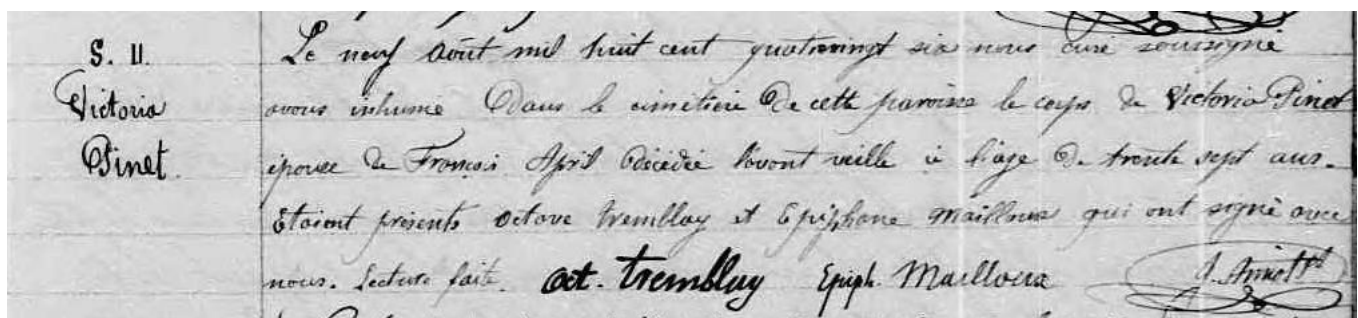 S. 11.
Victoria
Pinet.
Le neuf Août mil huit cent quatrevingt six nous curé soussigné
avons inhumé Dans le cimetière De cette paroisse le corps de Victoria Pinet
épouse de François April Décédée l'avant veille à l'âge De trente sept ans.
Étaient présents Octave Tremblay et Epiphane Mailloux qui ont signé avec
nous. Lecture faite. Oct. Tremblay Epiph. Mailloux